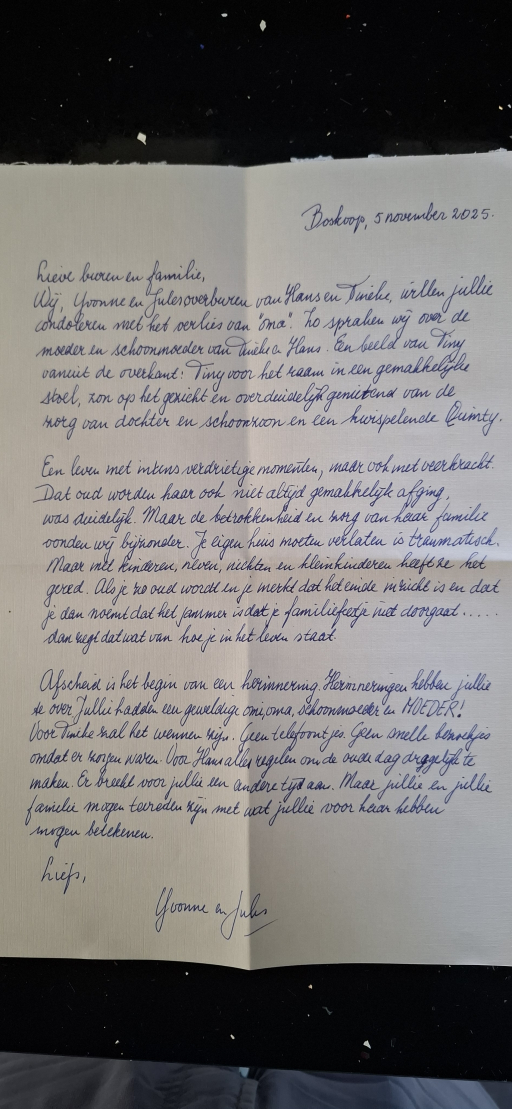 Boskoop, 5 november 2025.
Lieve buren en familie,
Wij, Yvonne en Jules overburen van Hans en Tineke, willen jullie
condoleren met het verlies van "oma". Zo spraken wij over de
moeder en schoonmoeder van Tineke en Hans. Een beeld van Tiny
vanuit de overkant: Tiny voor het raam in een gemakkelijke
stoel, zon op het gezicht en overduidelijk genietend van de
zorg van dochter en schoonzoon en een kwispelende Quinty.
Een leven met intens verdrietige momenten, maar ook met veerkracht.
Dat oud worden haar ook niet altijd gemakkelijk afging,
was duidelijk. Maar de betrokkenheid en zorg van haar familie
vonden wij bijzonder. Je eigen huis moeten verlaten is traumatisch.
Maar met kinderen, neven, nichten en kleinkinderen heeft ze het
gered. Als je zo oud wordt en je merkt dat het einde in zicht is en dat
je dan noemt dat het jammer is dat je familiefeestje niet doorgaat.....
dan zegt dat wat van hoe je in het leven staat.
Afscheid is het begin van een herinnering. Herinneringen hebben jullie
te over. Jullie hadden een geweldige omi, oma, schoonmoeder en MOEDER!
Voor Tineke zal het wennen zijn. Geen telefoontjes. Geen snelle bezoekjes
omdat er zorgen waren. Voor Hans alles regelen om de oude dag dragelijk te
maken. Er breekt voor jullie een andere tijd aan. Maar jullie en jullie
familie mogen tevreden zijn met wat jullie voor haar hebben
mogen betekenen.
Liefs,
Yvonne en Jules